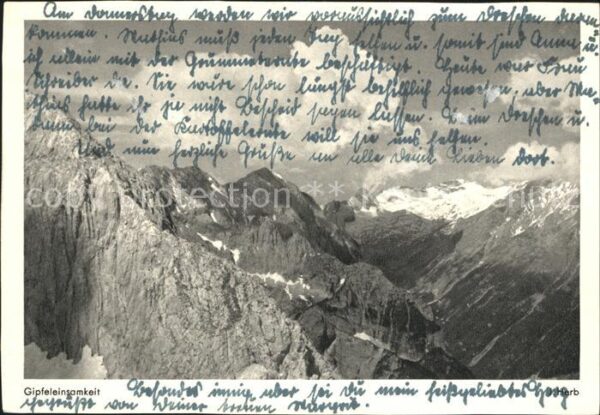 Am Donnerstag werden wir voraussichtlich zum Dreschen daran
kommen. Mathias muß jeden Tag helfen u. somit sind Anna u.
ich allein mit der Grummeternte beschäftigt. Heute war Frau
Schreiber da. Sie wäre schon längst behilflich gewesen, aber Ma-
thias hatte ihr ja nicht Bescheid sagen lassen. Beim Dreschen u.
dann bei der Kartoffelernte will sie uns helfen.
Und nun herzliche Grüße an alle deine Lieben dort.
copyright
Gipfeleinsamkeit
J. Herb
Besonders innig aber sei Du mein heißgeliebtes
gegrüßt von Deiner treuen Margret.